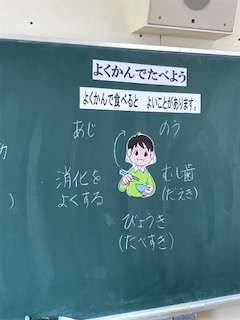 よくかんでたべよう
よくかんで食べると よいことがあります。
あじ
のう
消化を
よくする
むし歯
(だえき)
びょうき
(たべすき)